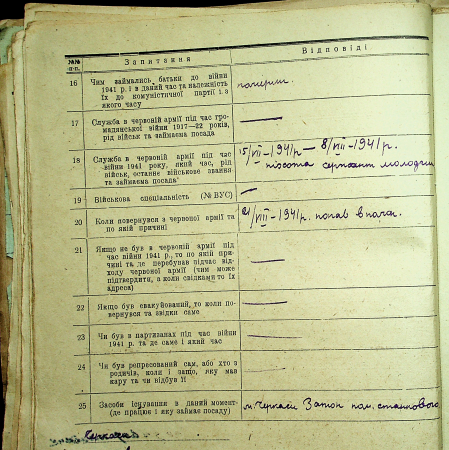 №№ п.п.
Запитання
Відповіді
16
Чим займались батьки до війни
1941 р. і в даний час та належність
їх до комуністичної партії і з
якого часу
померли.
17
Служба в червоній армії під час гро-
мадянської війни 1917—22 років,
рід військ та займаєма посада
18
Служба в червоній армії під час
війни 1941 року, який час, рід
військ, останнє військове звання
та займаєма посада
15/VII-1941р — 8/VIII-1941р.
піхота сержант молодший
19
Військова спеціяльність (№ ВУС)
20
Коли повернувся з червоної армії та
по якій причині
21/VIII-1941р. попав в полон.
21
Якщо не був в червоній армії під
час війни 1941 р., то по якій при-
чині та де перебував підчас від-
ходу червоної армії (чим може
підтвердити, а коли свідками то їх
адреса)
22
Якщо був евакуйований, то коли по-
вернувся та звідки саме
23
Чи був в партизанах під час війни
1941 р. та де саме і який час
24
Чи був репресований сам, або хто з
родичів, коли і защо, яку мав
кару та чи відбув її
25
Засоби існування в даний момент-
(де працює і яку займає посаду)
м. Черкаси Затон пом.